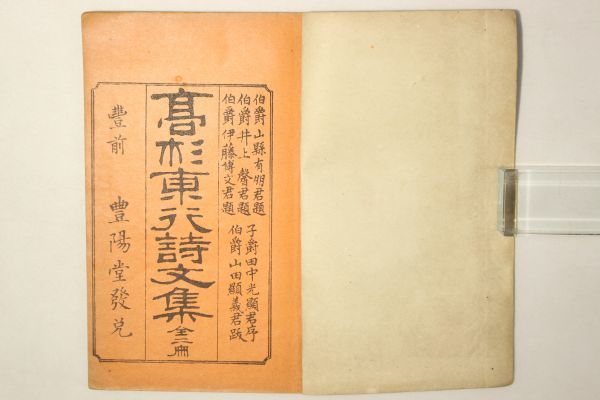 伯爵山縣有朋君題
伯爵井上馨君題
伯爵伊藤博文君題
子爵田中光顯君序
伯爵山田顯義君跋
高杉東行詩文集 全二冊
豐前 豐陽堂發兌